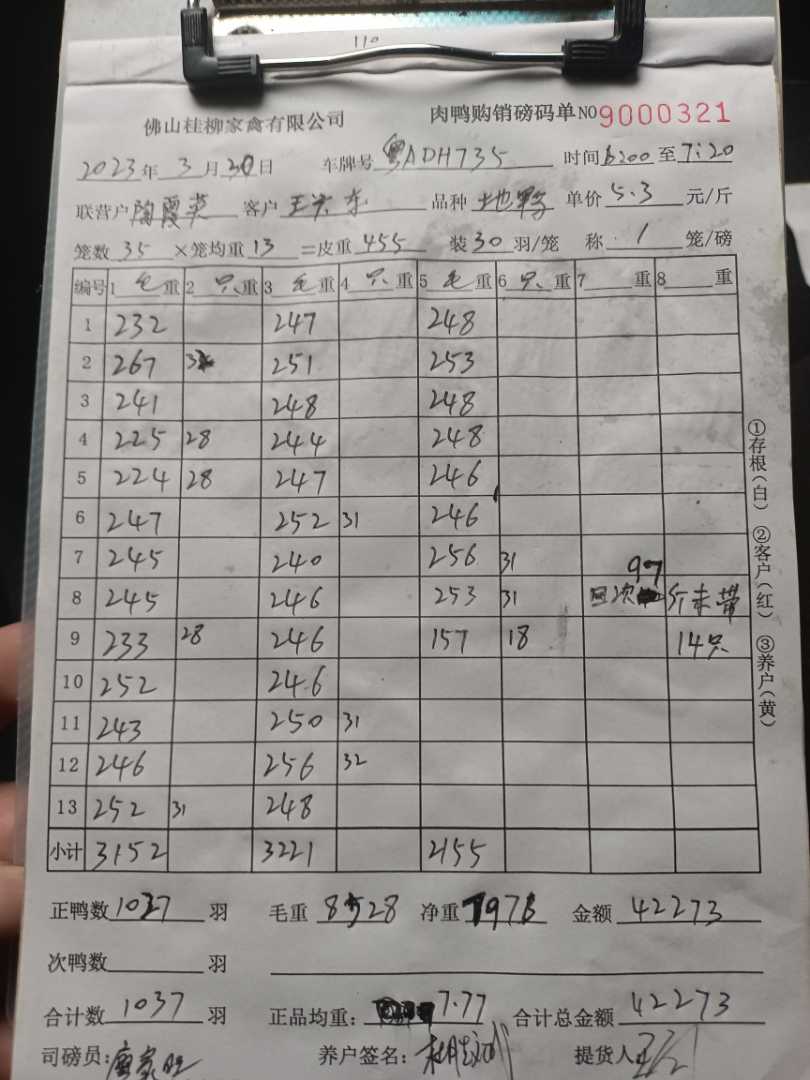 110
佛山桂柳家禽有限公司 肉鸭购销磅码单NO9000321
2023年3月30日 车牌号粤ADH735 时间6:00至7:20
联营户陶霞英 客户王兴东 品种 单价5.3元/斤
笼数35×笼均重13=皮重455 装30羽/笼 称1笼/磅
编号 1毛重 2只重 3毛重 4只重 5毛重 6只重 7重 8重
1 232 247 248
2 267 251 253
3 241 248 248
4 225 28 244 248
5 224 28 247 246
6 247 252 31 246
7 245 240 256 31 97
8 245 246 253 31 斤未带
9 233 28 246 157 18 14只
10 252 246
11 243 250 31
12 246 256 32
13 252 31 248
小计 3152 3221 2155
正鸭数1037羽 毛重8528 净重 金额42273
次鸭数羽
合计数1037羽 正品均重：7.77 合计总金额42273
司磅员： 养户签名： 提货人
①存根（白） ②客户（红） ③养户（黄）